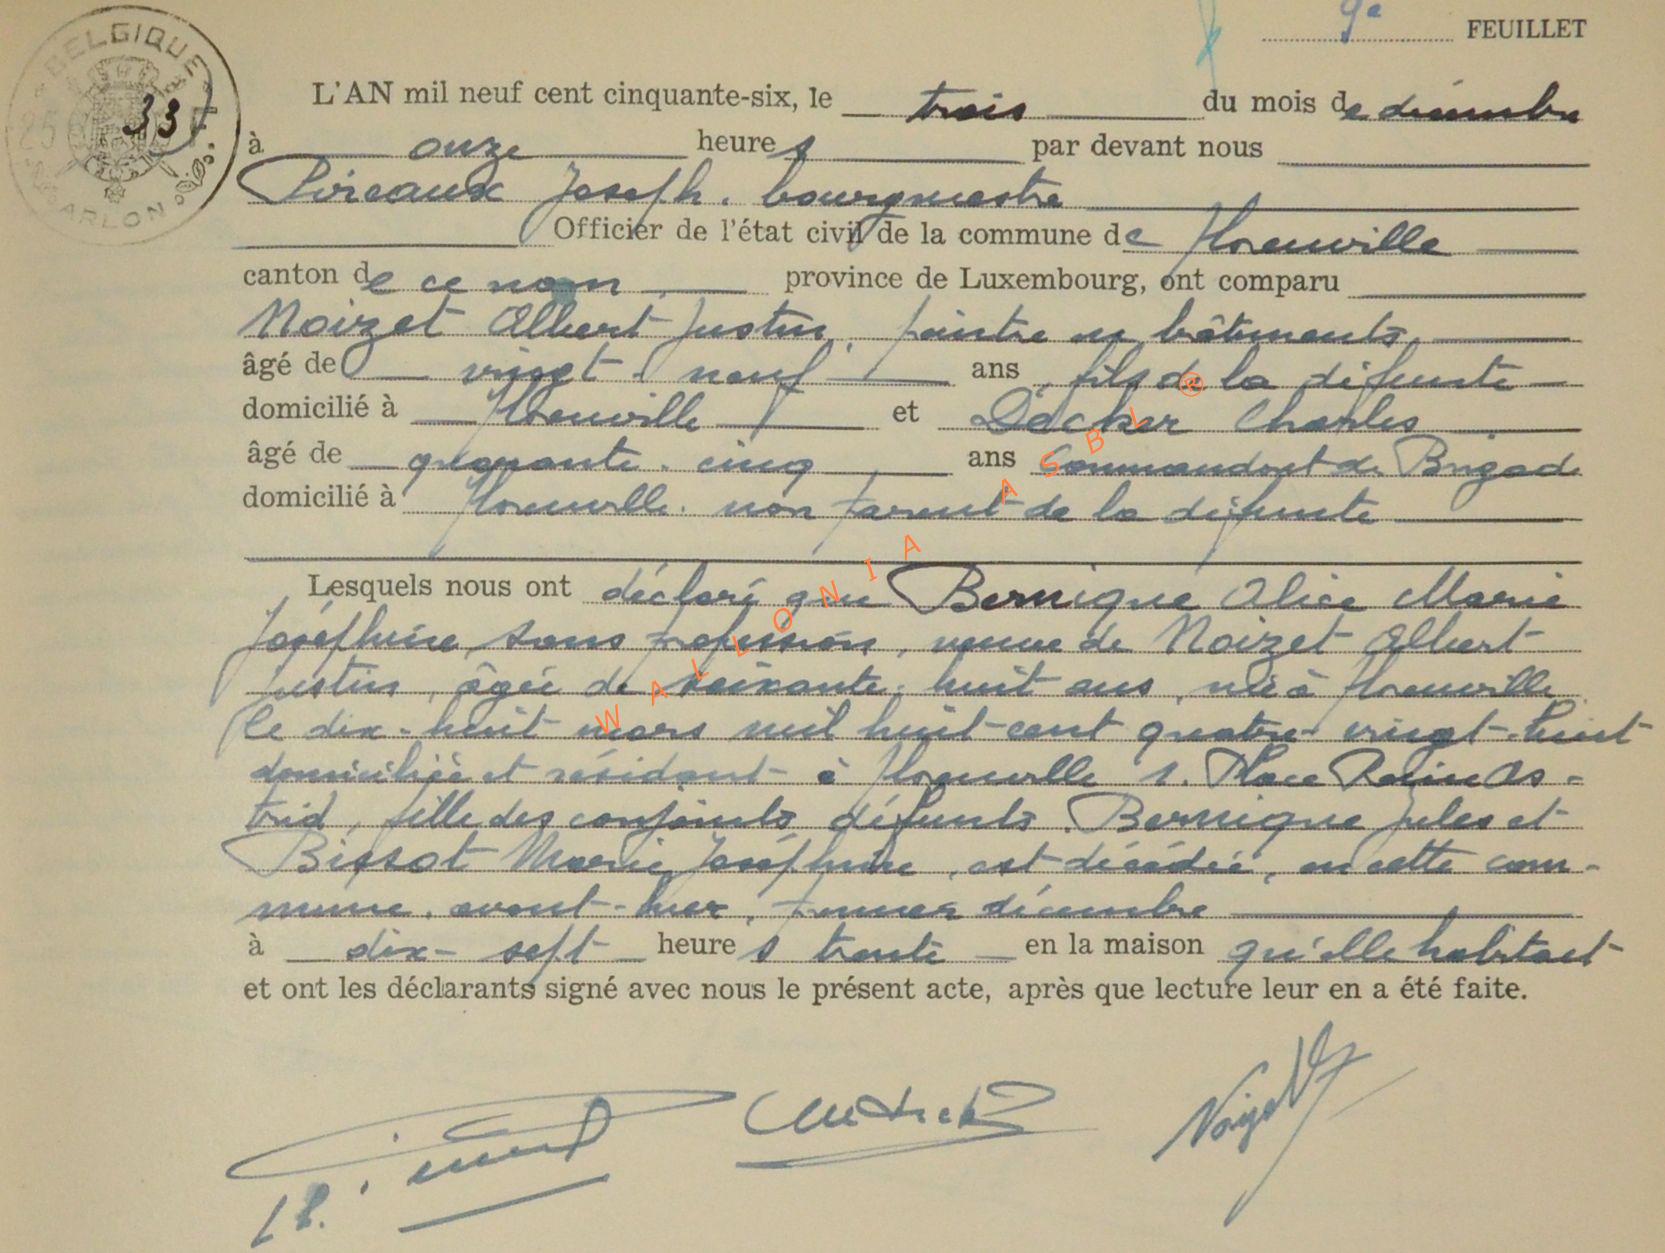 9e FEUILLET
BELGIQUE
33
ARLON
L'AN mil neuf cent cinquante-six, le trois du mois de décembre
à onze heures par devant nous
Pireaux Joseph, bourgmestre
Officier de l'état civil de la commune de Florenville
canton de ce nom province de Luxembourg, ont comparu
Noizet Albert Justin, peintre en bâtiments,
âgé de vingt-neuf ans, fils de la défunte
domicilié à Florenville et Decker Charles
âgé de quarante-cinq ans Commandant de Brigade
domicilié à Florenville, non parent de la défunte
Lesquels nous ont déclaré que Bernique Alice Marie
Joséphine, sans profession, veuve de Noizet Albert
Justin, âgée de soixante-huit ans, née à Florenville
le dix-huit mars mil huit-cent quatre-vingt-huit
domiciliée et résidant à Florenville 1. Place Reine As-
trid, fille des conjoints défunts Bernique Jules et
Bissot Marie Joséphine, est décédée, en cette com-
mune, avant-hier, premier décembre
à dix-sept heures trente en la maison qu'elle habitait
et ont les déclarants signé avec nous le présent acte, après que lecture leur en a été faite.
WALLONIA ASBL ®
Noizet